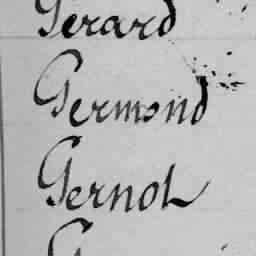 Gerard
Germond
Gernoh